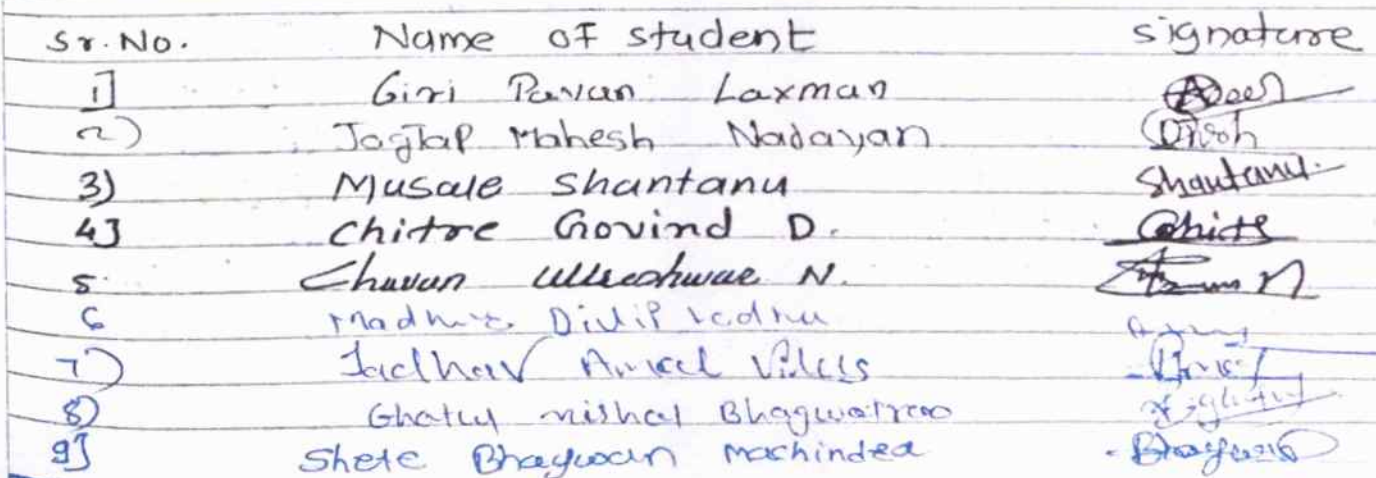 Sr. No. Name of student signature
1] Giri Pavan Laxman
2) Jagtap Mahesh Narayan
3) Musale Shantanu Shantanu
4] Chitre Govind D. Chitre
5. Chavan N.
6 Dilip
7) Jadhav Vilas
8) Ghatul Bhagwatrao
9] Shete Bhagwan Machindra Bhagwan